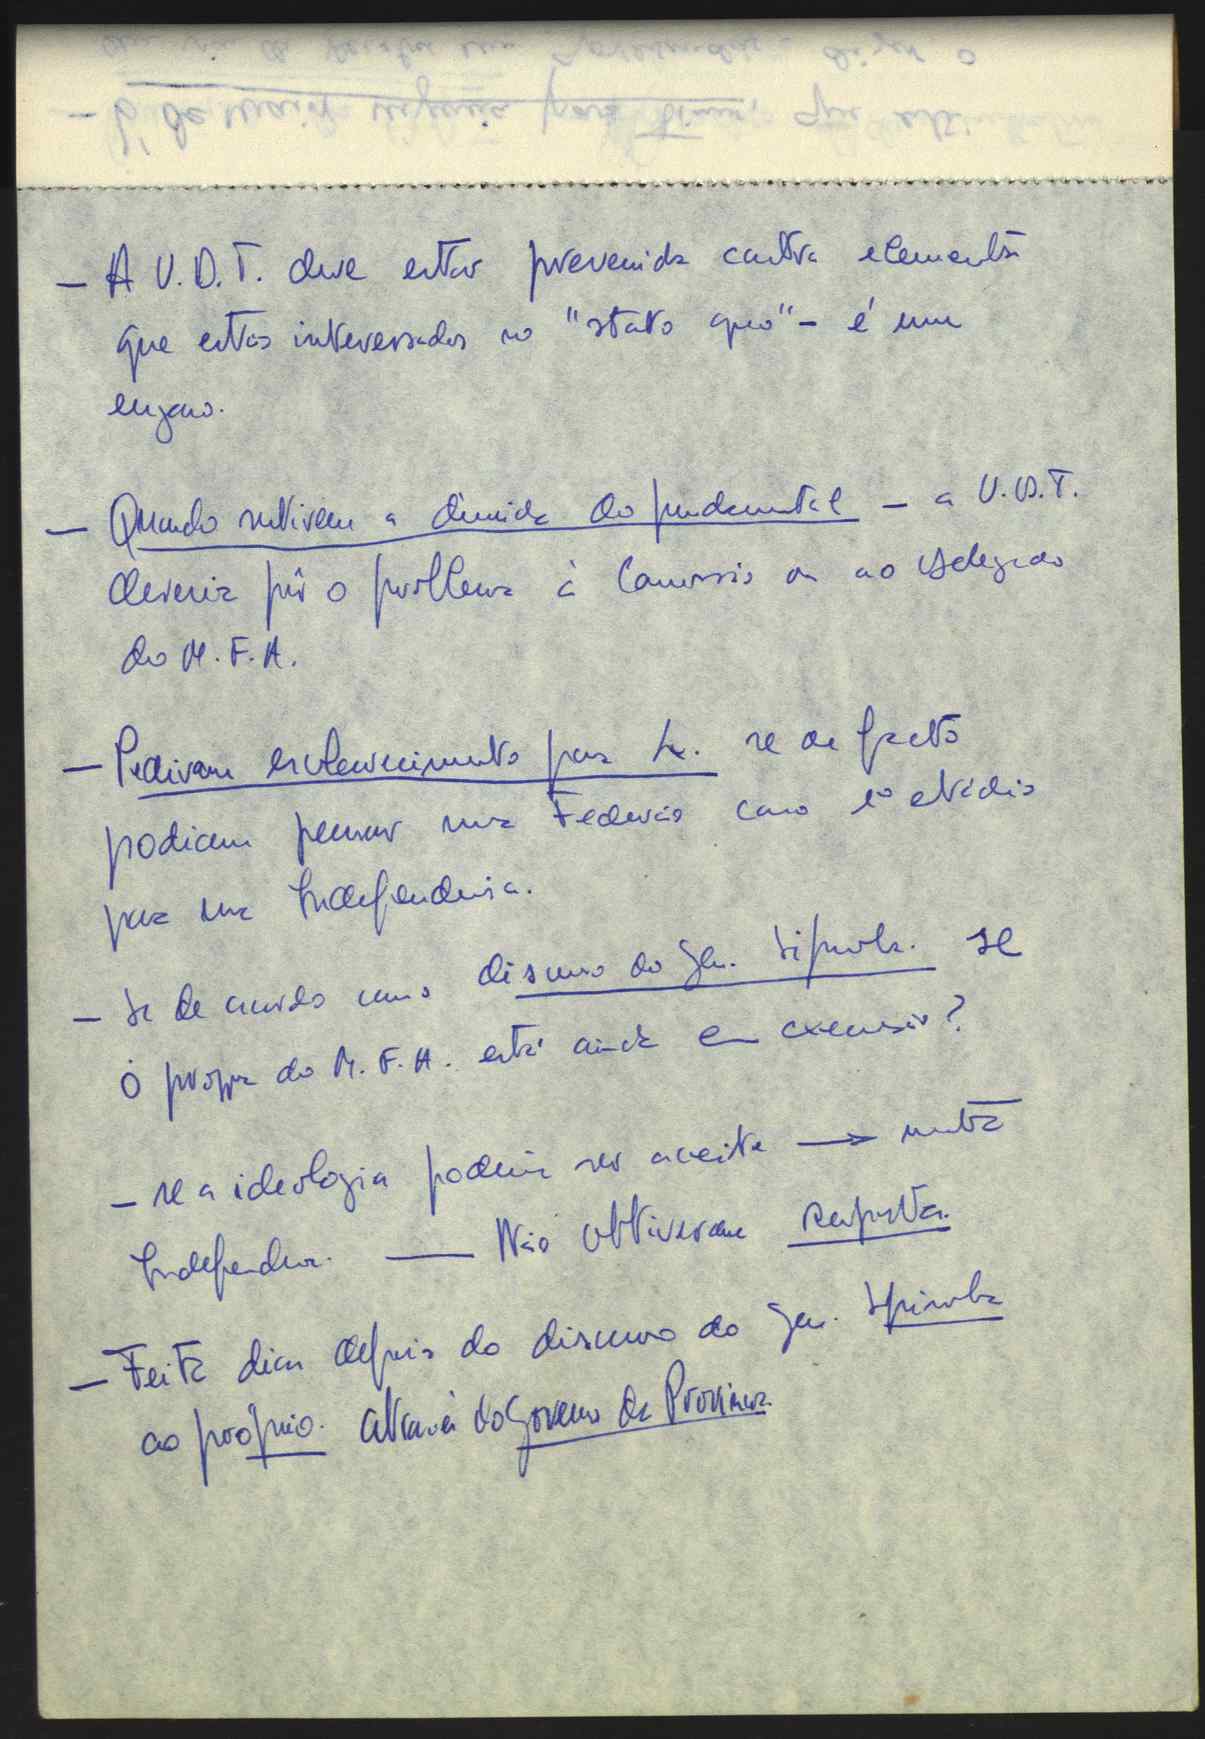 – A U.D.T. deve estar prevenida contra elementos
que estão interessados no "stato quo" – é um
engano.
– Quando sentirem a dúvida do fundamental – a U.D.T.
deveria pôr o problema à Comissão ou ao Delegado
do M.F.A.
– Pediram esclarecimento para Lx. se de facto
podiam pensar numa Federação como 1º estádio
para uma Independência.
– Se de acordo com o discurso do Gen. Spínola. se
o progr. do M.F.A. está ainda em execução?
– se a ideologia poderia ser aceite → muita
Independen. — Não obtiveram resposta.
– Feita dias depois do discurso do Gen. Spínola
ao próprio. através do Governo da Província.